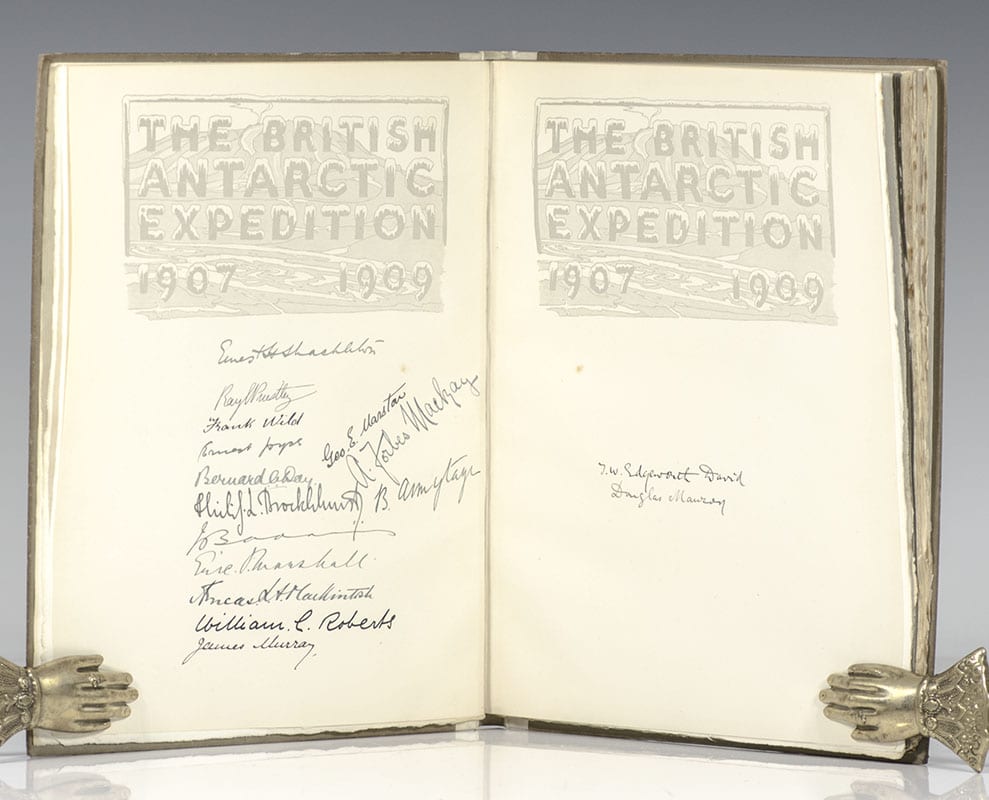 THE BRITISH
ANTARCTIC
EXPEDITION
1907 1909
Ernest H Shackleton
Raymond Priestley
Frank Wild
Ernest Joyce
Bernard C. Day
Philip L. Brocklehurst
Geo E. Marston
A. Forbes Mackay
B. Armytage
Eric. S. Marshall.
Aeneas. L. A. Mackintosh
William. C. Roberts
James Murray,
THE BRITISH
ANTARCTIC
EXPEDITION
1907 1909
T. W. Edgeworth David
Douglas Mawson